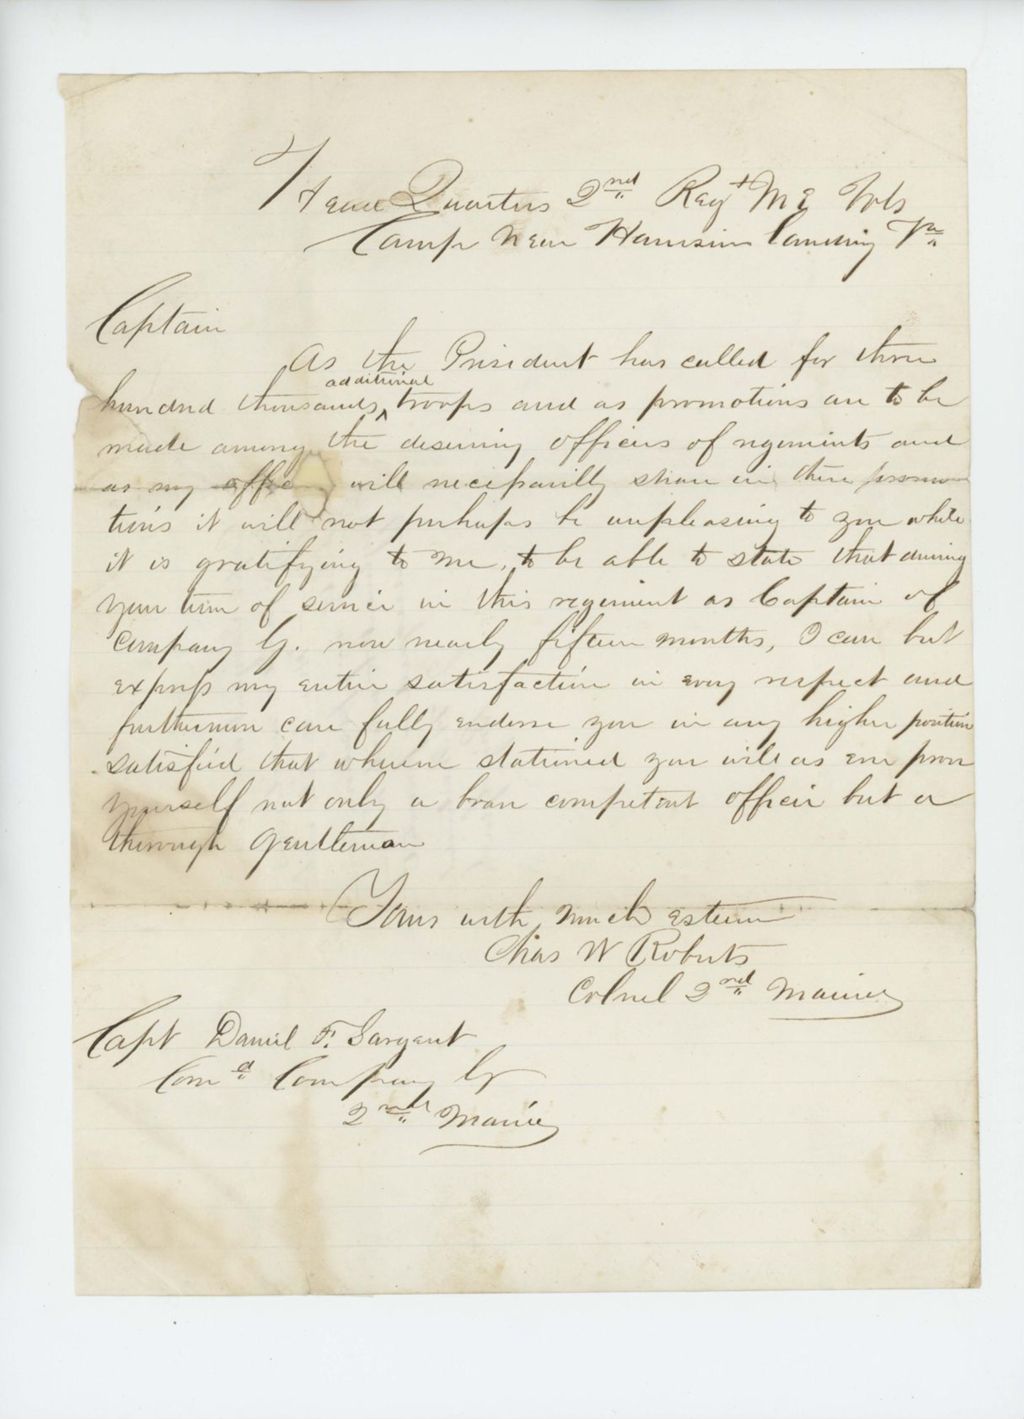 Head Quarters 2nd Regt ME Vols
Camp Near Harrisons Landing Va
Captain
As the President has called for three
additional
hundred thousands troops and as promotions are to be
made among the deserving officers of regiments and
as my will necessarily share in these promo
tions it will not perhaps be unpleasing to you while
it is gratifying to me, to be able to state that during
your term of service in this regiment as Captain of
Company G. now nearly fifteen months, I can but
express my entire satisfaction in every respect and
furthermore can fully endorse you in any higher position
satisfied that wherever stationed you will as ever prove
yourself not only a brave competent officer but a
thorough gentleman
Yours with much esteem
Chas W Roberts
Colonel 2nd Maine
Capt Daniel F. Sargent
Comd Company G
2nd Maine